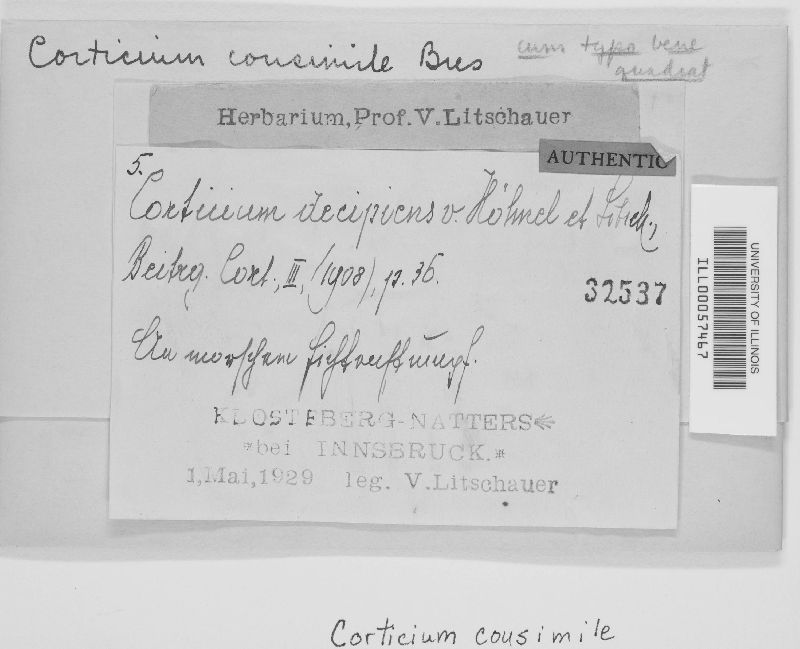 Corticium consimile Bres
cum typo bene
quadrat
Herbarium, Prof. V. Litschauer
AUTHENTIC
5.
Corticium decipiens v. Höhnel et Litsch.,
Beitrg. Cort., III, (1908), p. 36.
32537
An morschem Fichtenstrumpf.
KLOSTERBERG-NATTERS
*bei INNSBRUCK.*
1, Mai, 1929 leg. V. Litschauer
UNIVERSITY OF ILLINOIS
ILL00057467
Corticium consimile